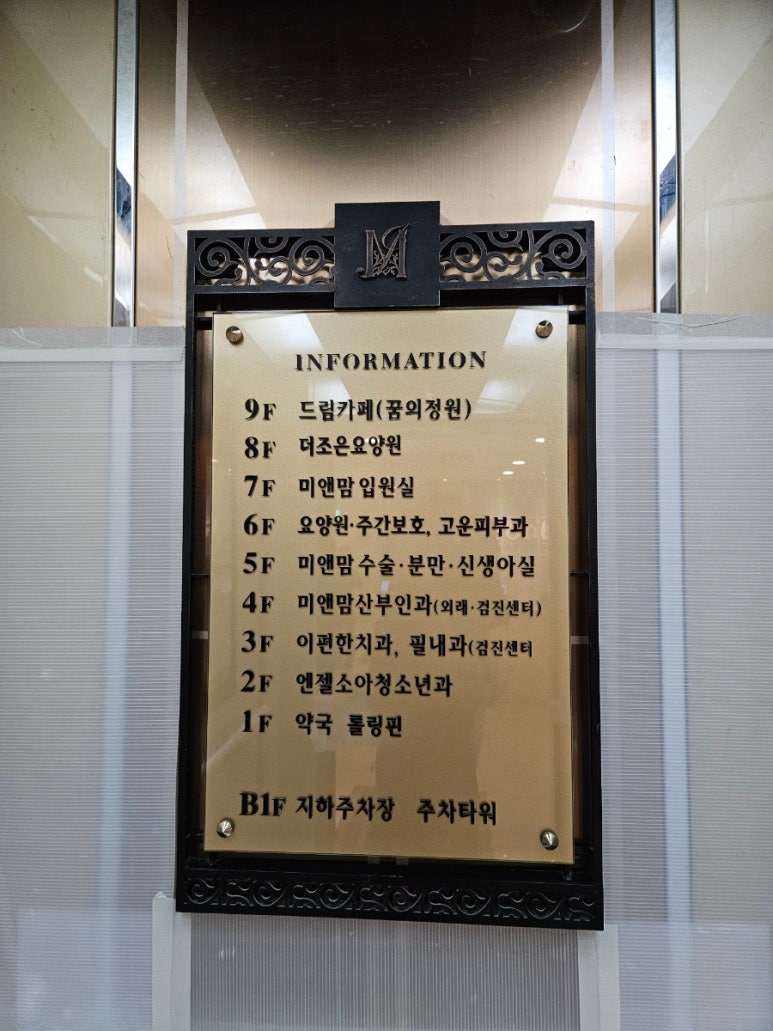 M
INFORMATION
9F 드림카페(꿈의정원)
8F 더조은요양원
7F 미앤맘 입원실
6F 요양원·주간보호, 고운피부과
5F 미앤맘 수술·분만·신생아실
4F 미앤맘산부인과(외래·검진센터)
3F 이편한치과, 필내과(검진센터
2F 엔젤소아청소년과
1F 약국 롤링핀
B1F 지하주차장 주차타워